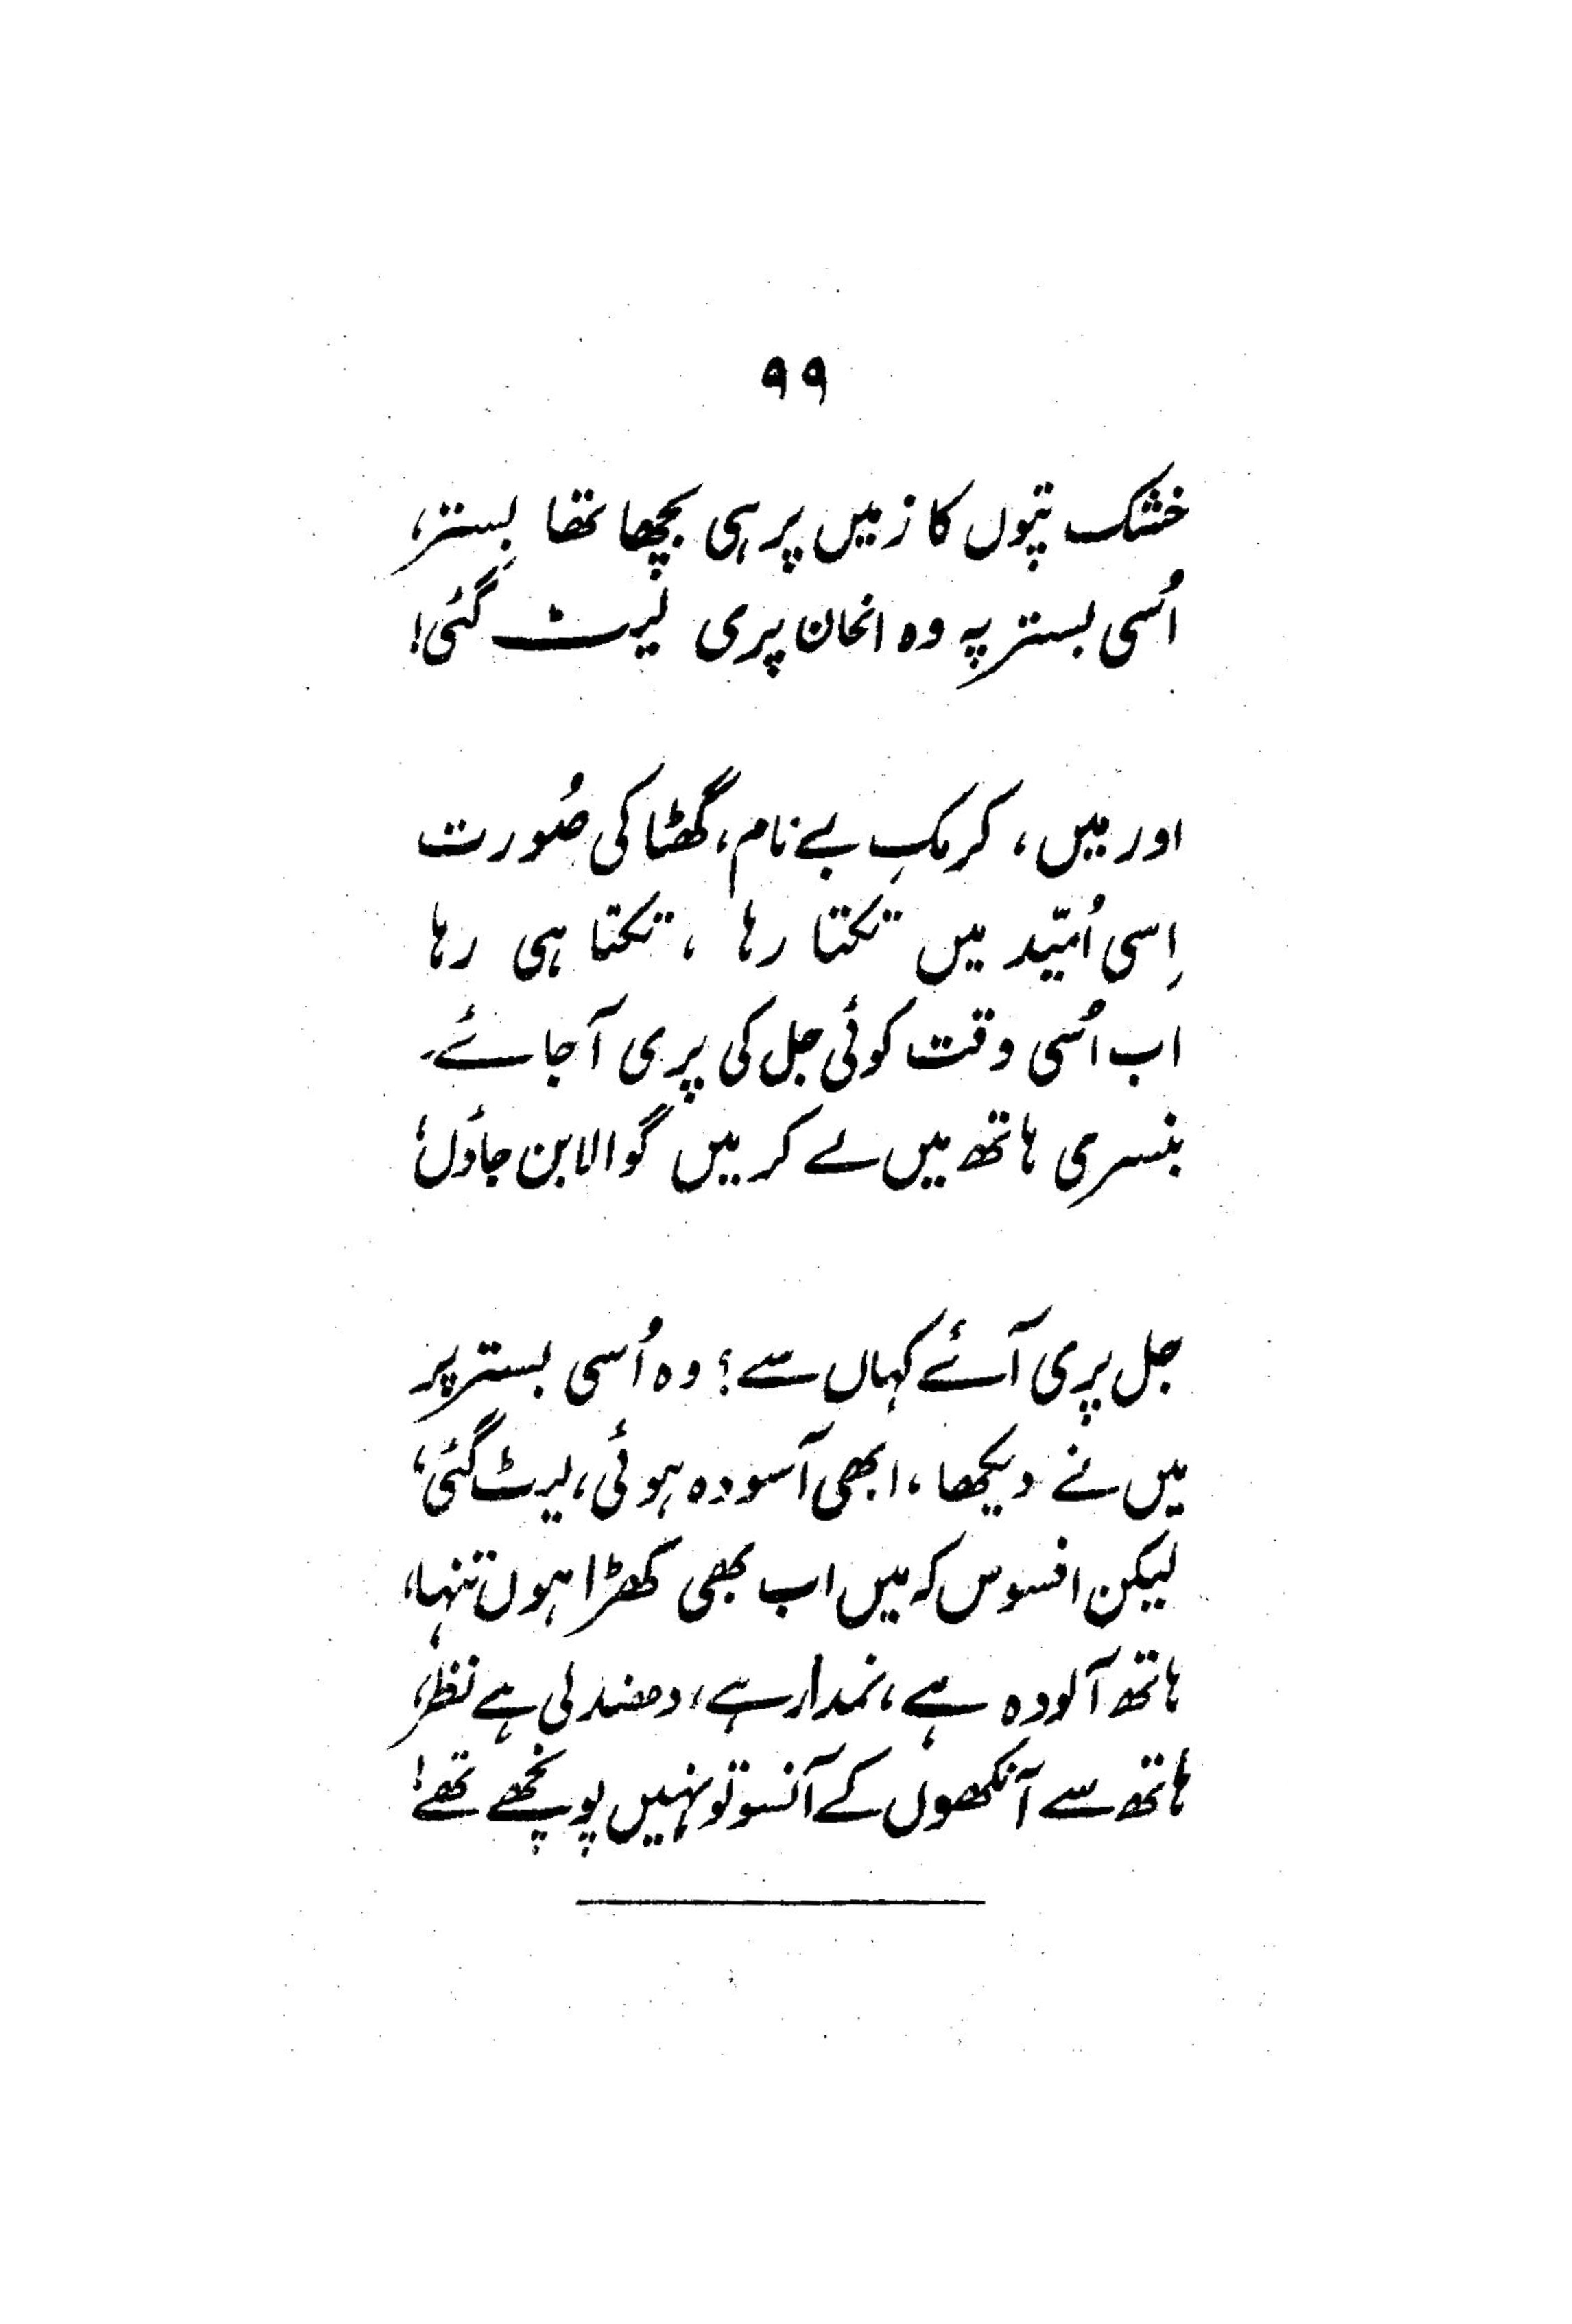 ۹۹
خشک پتّوں کا زمیں پر ہی بچھا تھا بستر،
اُسی بستر پہ وہ انجان پری لیٹ گئی!
اور میں، کرمکِ بے نام، گھٹا کی صُورت
اِسی اُمّید میں تکتا رہا، تکتا ہی رہا
اب اُسی وقت کوئی جل کی پری آ جائے
بنسری ہاتھ میں لے کر میں گوالا بن جاؤں!
جل پری آئے کہاں سے؟ وہ اُسی بستر پر
میں نے دیکھا، ابھی آسودہ ہوئی، لیٹ گئی،
لیکن افسوس کہ میں اب بھی کھڑا ہوں تنہا،
ہاتھ آلودہ ہے، نمدار ہے، دھندلی ہے نظر،
ہاتھ سے آنکھوں کے آنسو تو نہیں پونچھے تھے!